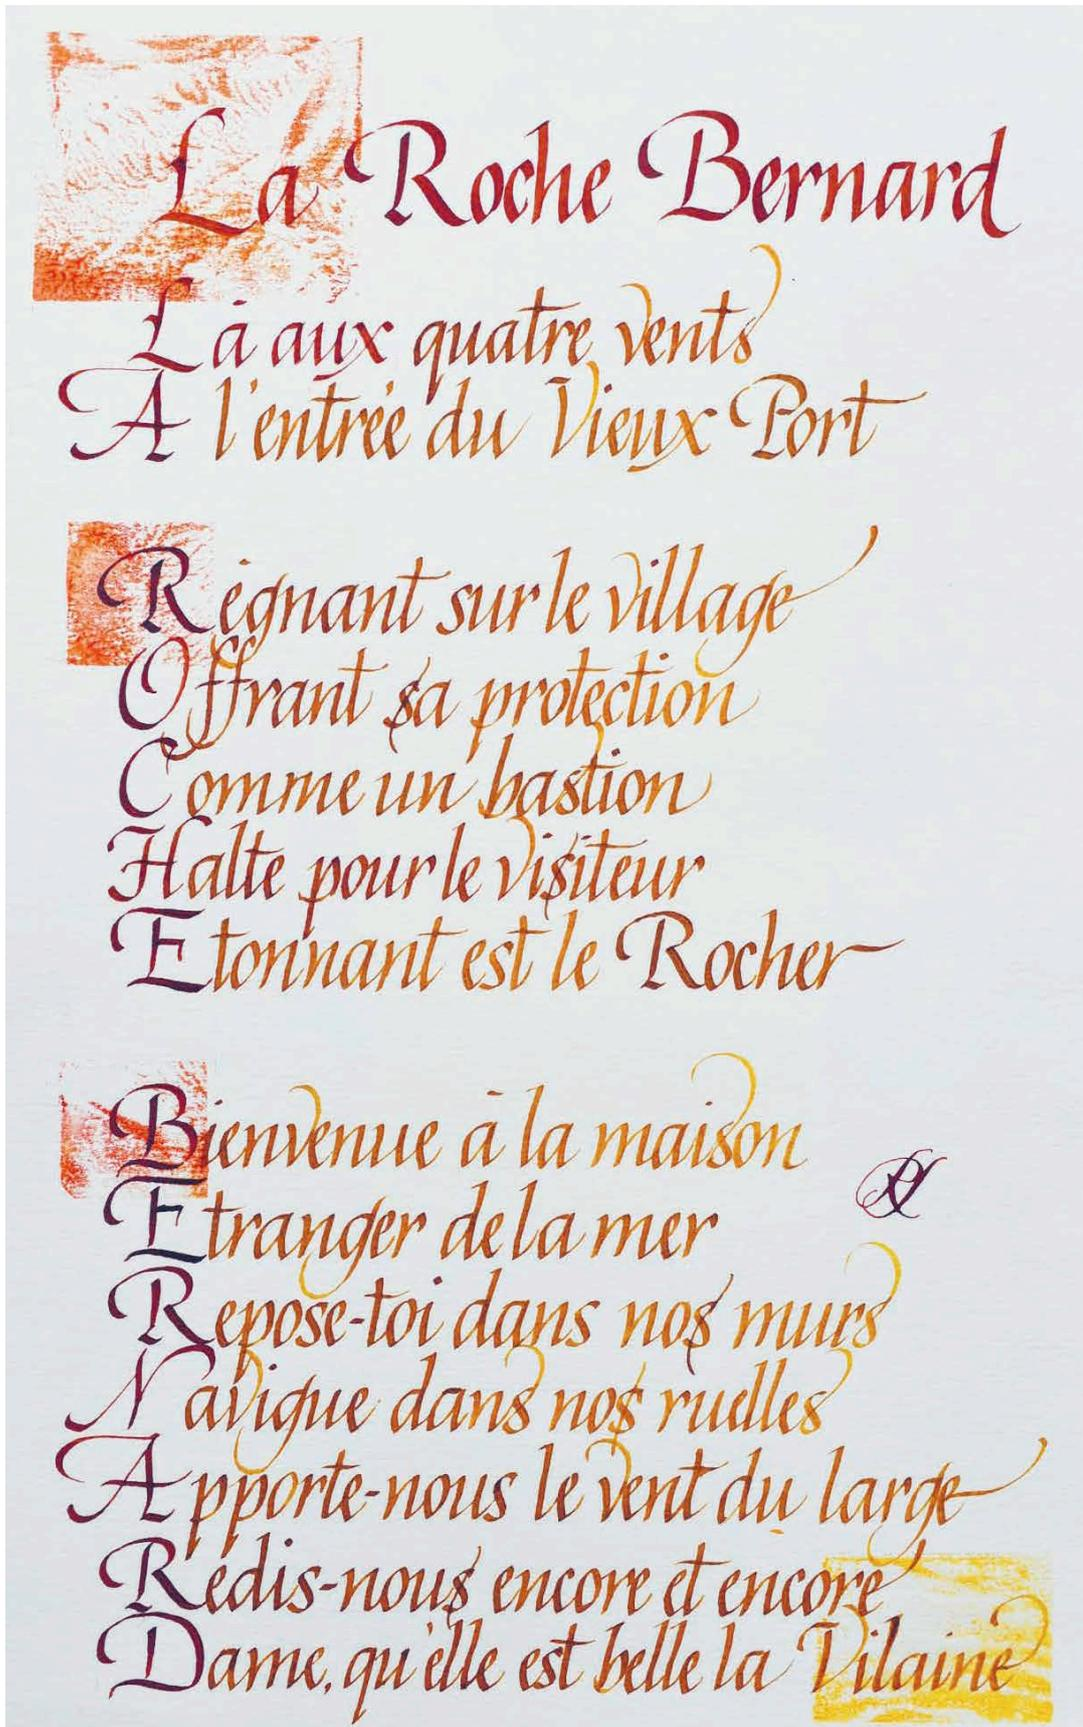 La Roche Bernard
Là aux quatre vents
A l'entrée du Vieux Port
Régnant sur le village
Offrant sa protection
Comme un bastion
Halte pour le visiteur
Etonnant est le Rocher
Bienvenue à la maison
Etranger de la mer
Repose-toi dans nos murs
Navigue dans nos ruelles
Apporte-nous le vent du large
Redis-nous encore et encore
Dame, qu'elle est belle la Vilaine